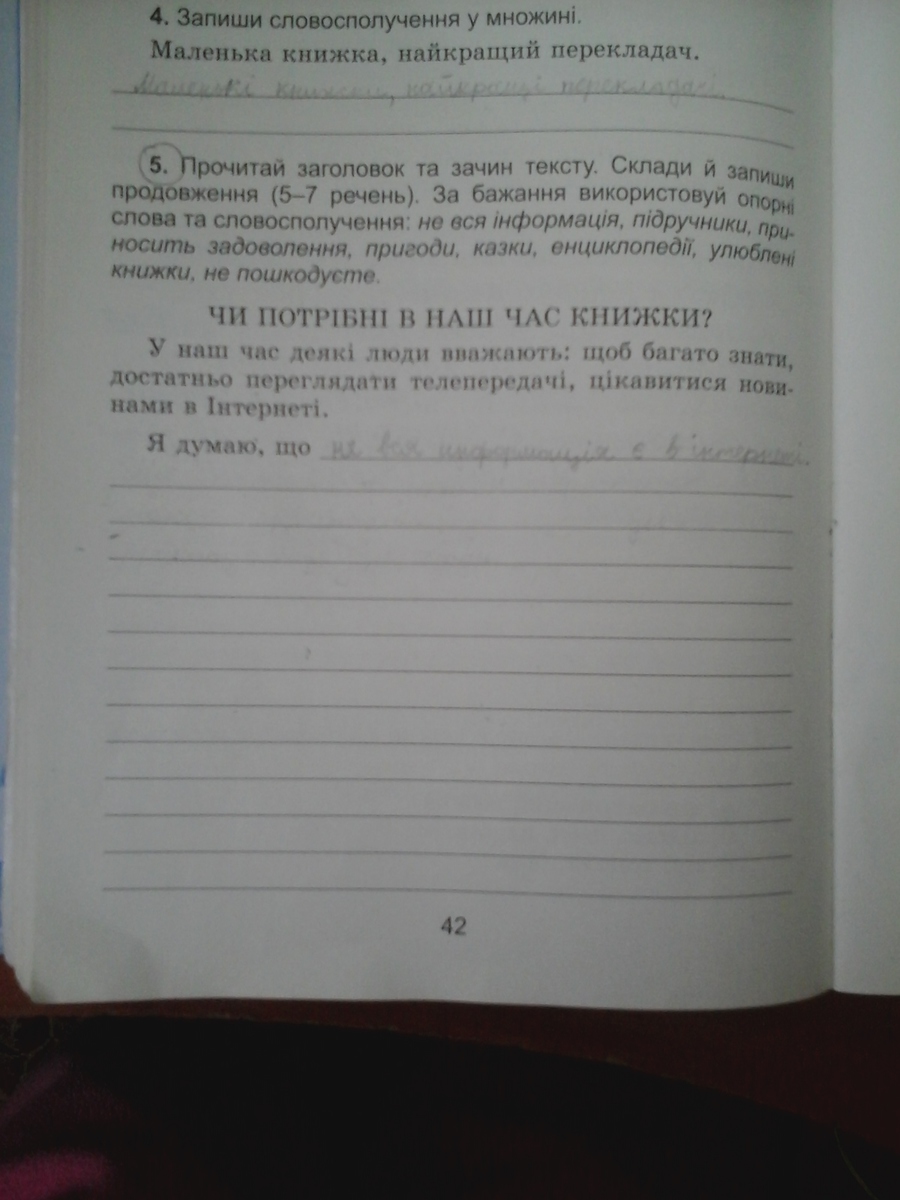 4. Запиши словосполучення у множині.
Маленька книжка, найкращий перекладач.
Маленькі книжки, найкращі перекладачі.
5. Прочитай заголовок та зачин тексту. Склади й запиши
продовження (5–7 речень). За бажання використовуй опорні
слова та словосполучення: не вся інформація, підручники, при-
носить задоволення, пригоди, казки, енциклопедії, улюблені
книжки, не пошкодуєте.
ЧИ ПОТРІБНІ В НАШ ЧАС КНИЖКИ?
У наш час деякі люди вважають: щоб багато знати,
достатньо переглядати телепередачі, цікавитися нови-
нами в Інтернеті.
Я думаю, що не вся информація є в інтернеті.
42